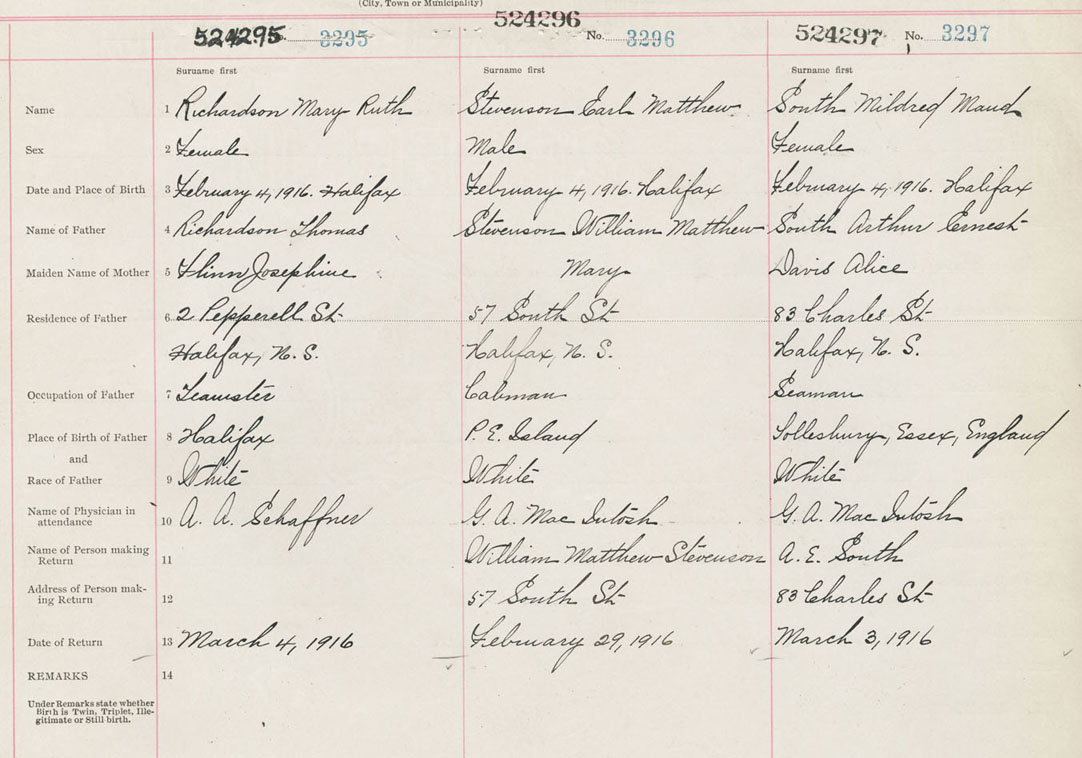 (City, Town or Municipality)
524295 3295 524296 No. 3296 524297 No. 3297
Surname first Surname first Surname first
Name 1 Richardson Mary Ruth Stevenson Earl Matthew South Mildred Maud
Sex 2 Female Male Female
Date and Place of Birth 3 February 4, 1916. Halifax February 4, 1916. Halifax February 4, 1916. Halifax
Name of Father 4 Richardson Thomas Stevenson William Matthew South Arthur Ernest
Maiden Name of Mother 5 Flinn Josephine Mary Davis Alice
Residence of Father 6 2 Pepperell St 57 South St 83 Charles St
Halifax, N. S. Halifax, N. S. Halifax, N. S.
Occupation of Father 7 Teamster Cabman Seaman
Place of Birth of Father 8 Halifax P. E. Island Tollesbury, Essex, England
and
Race of Father 9 White White White
Name of Physician in attendance 10 A. A. Schaffner G. A. Mac Intosh G. A. Mac Intosh
Name of Person making Return 11 William Matthew Stevenson A. E. South
Address of Person mak-
ing Return 12 57 South St 83 Charles St
Date of Return 13 March 4, 1916 February 29, 1916 March 3, 1916
REMARKS 14
Under Remarks state whether
Birth is Twin, Triplet, Ille-
gitimate or Still birth.